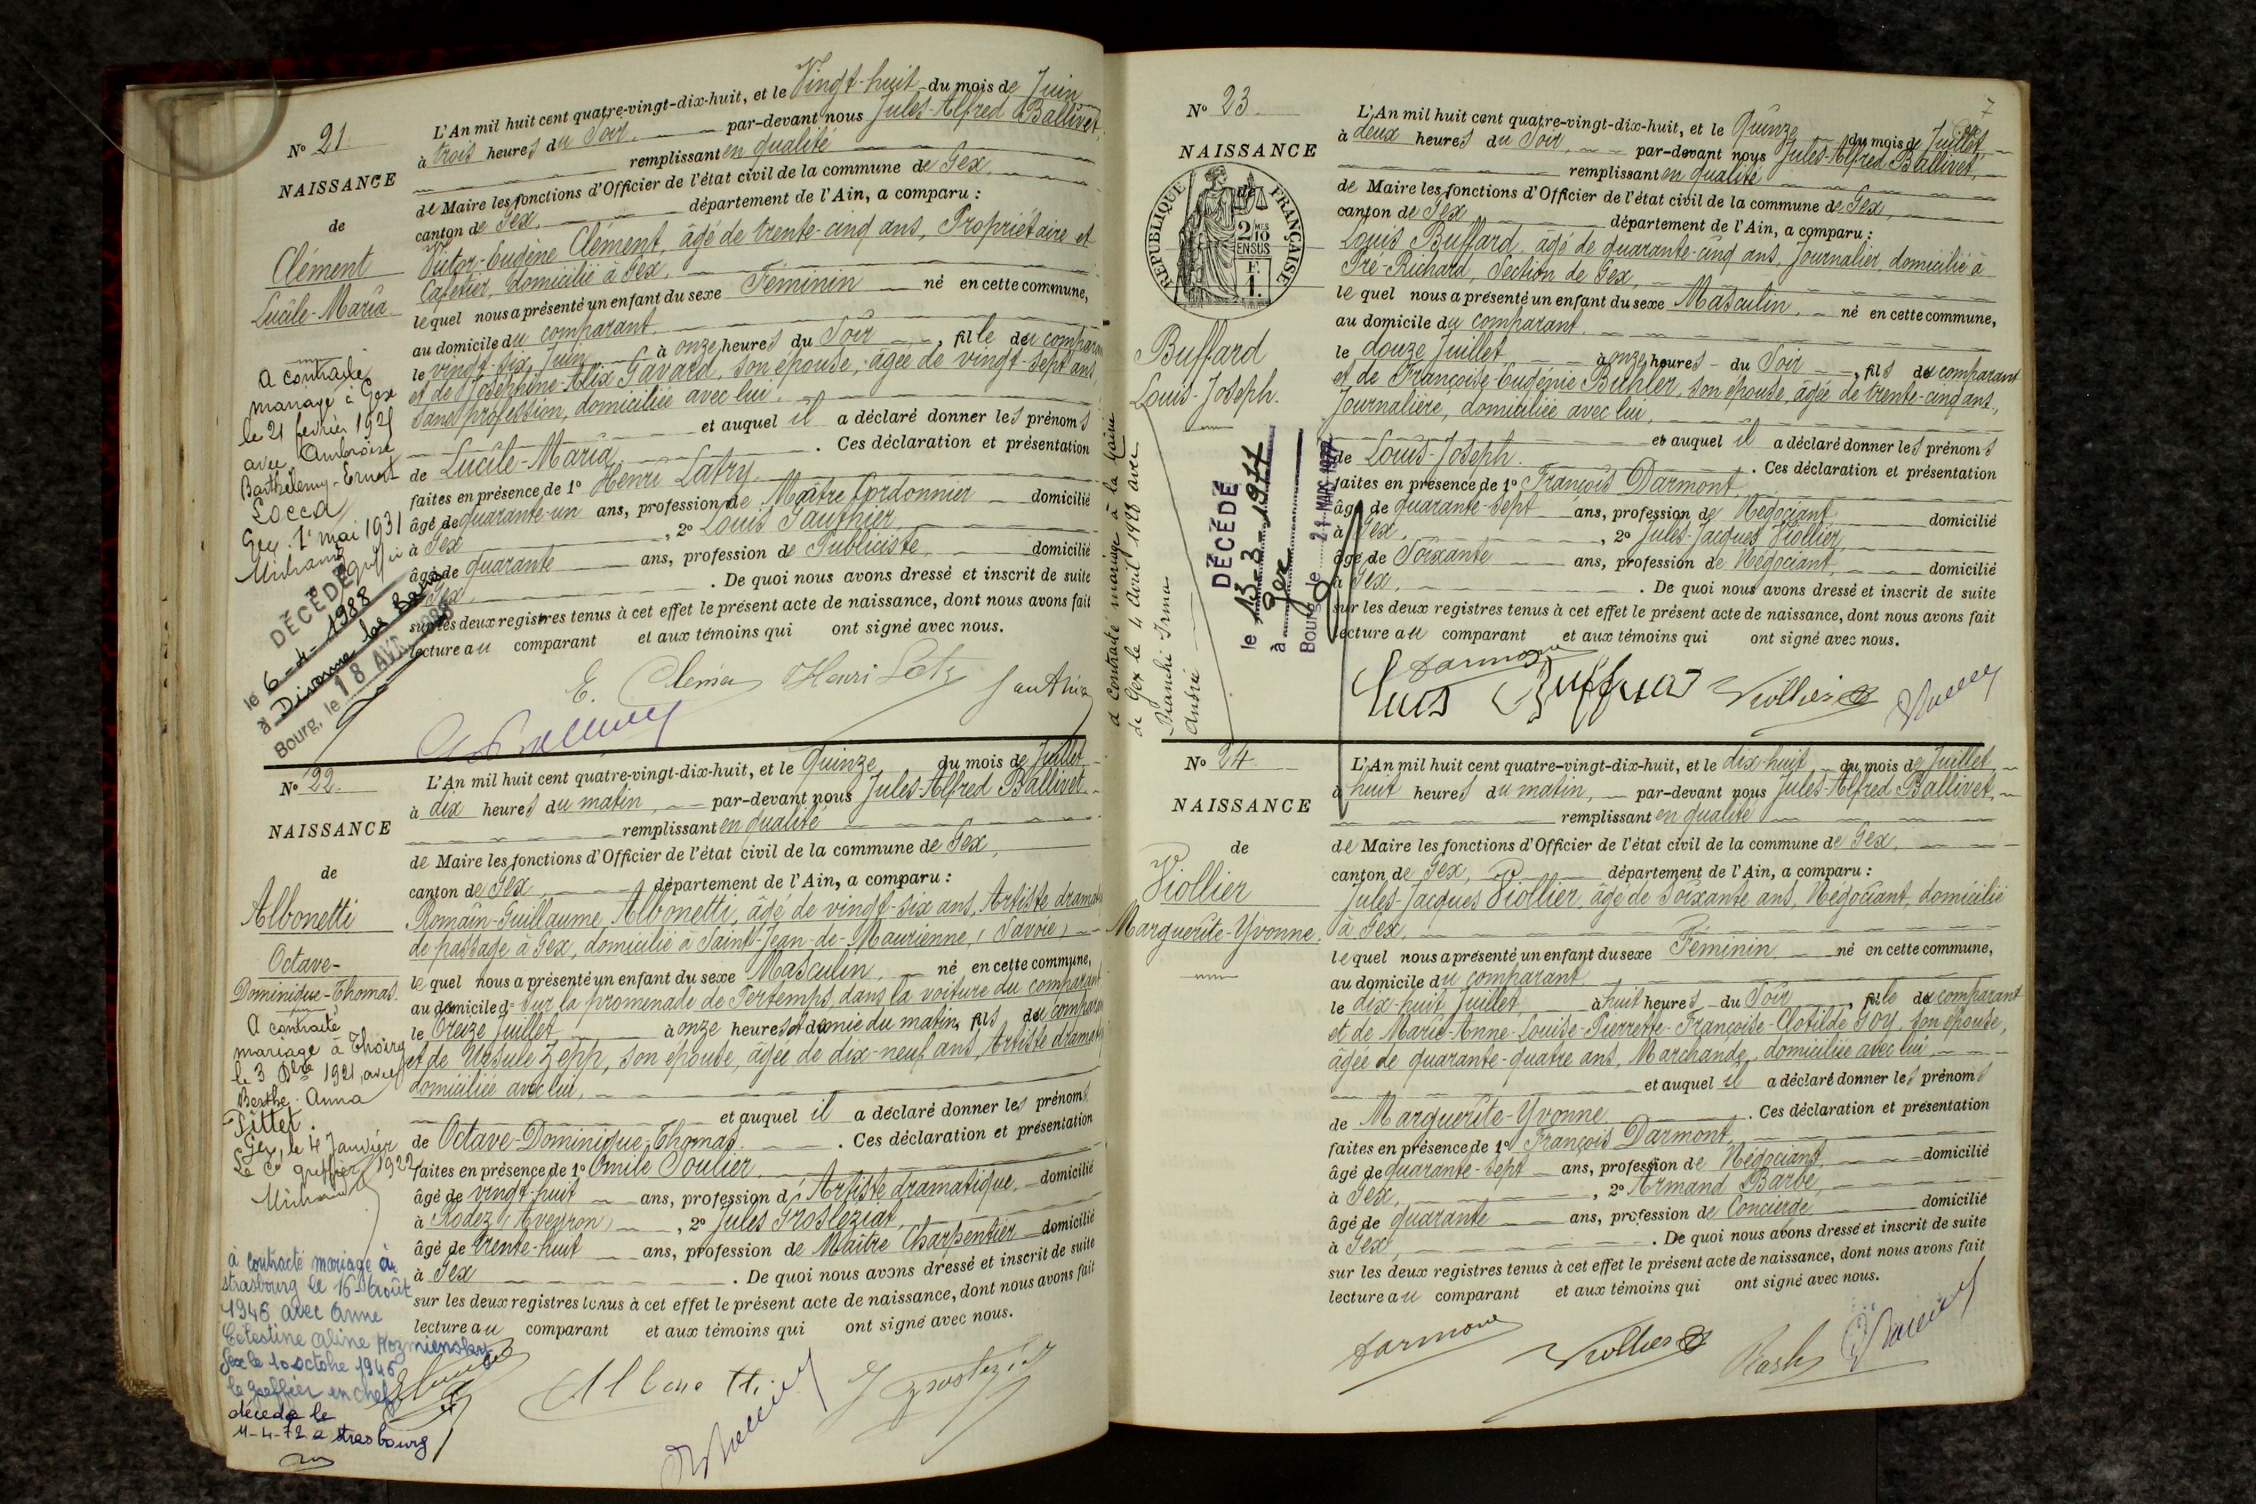 No 21
NAISSANCE
de
Clément
Lucile-Maria
A contracté
mariage à Gex
le 21 février 1925
avec Ambroise
Barthélemy-Ernest
Locca
Gex. 1er mai 1931
DÉCÉDÉ
le 6-4-1988
à Divonne les Bains
Bourg, le 18 AVR. 1988
L'An mil huit cent quatre-vingt-dix-huit, et le Vingt-huit du mois de Juin
à trois heures du Soir. par-devant nous Jules-Alfred Ballivet,
remplissant en qualité
de Maire les fonctions d'Officier de l'état civil de la commune de Gex,
canton de Gex, département de l'Ain, a comparu :
Victor-Eugène Clément, âgé de trente-cinq ans, Propriétaire et
Cafetier, domicilié à Gex,
lequel nous a présenté un enfant du sexe Féminin né en cette commune,
au domicile du comparant.
le vingt-six Juin à onze heures du Soir, fille du comparant
et de Joséphine-Alix Gavard, son épouse, âgée de vingt-sept ans,
sans profession, domiciliée avec lui,
et auquel il a déclaré donner les prénoms
de Lucile-Maria. Ces déclaration et présentation
faites en présence de 1o Henri Latry
âgé de quarante-un ans, profession de Maître Cordonnier domicilié
à Gex, 2o Louis Gauthier,
âgé de quarante ans, profession de Publiciste domicilié
à Gex. De quoi nous avons dressé et inscrit de suite
sur les deux registres tenus à cet effet le présent acte de naissance, dont nous avons fait
lecture au comparant et aux témoins qui ont signé avec nous.
E. Clément Henri Latry Gauthier
No 22.
NAISSANCE
de
Albonetti
Octave-
Dominique-Thomas.
A contracté
mariage à Thoiry
le 3 Dbre 1921, avec
Berthe-Anna
Pittet.
Gex, le 4 Janvier
1922
à contracté mariage à
strasbourg le 16 Août
1946 avec Anne
Célestine Aline
Gex le 10 octobre 1946
le greffier en chef
décédé le
11-4-72 a strasbourg
L'An mil huit cent quatre-vingt-dix-huit, et le Quinze du mois de Juillet
à dix heures du matin, par-devant nous Jules-Alfred Ballivet
remplissant en qualité
de Maire les fonctions d'Officier de l'état civil de la commune de Gex,
canton de Gex, département de l'Ain, a comparu :
Romain-Guillaume Albonetti, âgé de vingt-six ans, Artiste dramat
de passage à Gex, domicilié à Saint-Jean-de-Maurienne, (Savoie)
lequel nous a présenté un enfant du sexe Masculin, né en cette commune,
au domicile d= sur la promenade de Pertemps dans la voiture du comparant
le treize Juillet à onze heures et demie du matin, fils du comparant
et de Ursule Zepp, son épouse, âgée de dix-neuf ans, Artiste dramat
domiciliée avec lui,
et auquel il a déclaré donner les prénoms
de Octave-Dominique-Thomas. Ces déclaration et présentation
faites en présence de 1o Emile Soulier,
âgé de vingt-huit ans, profession d'Artiste dramatique, domicilié
à Rodez (Aveyron), 2o Jules Grosgeziat,
âgé de trente-huit ans, profession de Maître Charpentier domicilié
à Gex. De quoi nous avons dressé et inscrit de suite
sur les deux registres tenus à cet effet le présent acte de naissance, dont nous avons fait
lecture au comparant et aux témoins qui ont signé avec nous.
Albonetti
7
No 23
NAISSANCE
de
RÉPUBLIQUE FRANÇAISE
2 MES
10
EN SUS
F.
1.
Buffard
Louis-Joseph.
a contracté mariage à la Mairie
de Gex le 4 Avril 1928 avec
Irma
André
DÉCÉDÉ
le 13-3-1977
à Gex
Bourg, le 21 MARS 1977
L'An mil huit cent quatre-vingt-dix-huit, et le Quinze du mois de Juillet
à deux heures du Soir, par-devant nous Jules-Alfred Ballivet,
remplissant en qualité
de Maire les fonctions d'Officier de l'état civil de la commune de Gex,
canton de Gex département de l'Ain, a comparu :
Louis Buffard, âgé de quarante-cinq ans, Journalier, domicilié à
Pré-Richard, Section de Gex,
lequel nous a présenté un enfant du sexe Masculin, né en cette commune,
au domicile du comparant.
le douze Juillet à onze heures du Soir, fils du comparant
et de Françoise-Eugénie Buhler, son épouse, âgée de trente-cinq ans,
Journalière, domiciliée avec lui,
et auquel il a déclaré donner les prénoms
de Louis-Joseph. Ces déclaration et présentation
faites en présence de 1o François Darmont
âgé de quarante-sept ans, profession de Négociant domicilié
à Gex, 2o Jules-Jacques Viollier,
âgé de Soixante ans, profession de Négociant, domicilié
à Gex,. De quoi nous avons dressé et inscrit de suite
sur les deux registres tenus à cet effet le présent acte de naissance, dont nous avons fait
lecture au comparant et aux témoins qui ont signé avec nous.
Darmont
Luis Buffard Viollier
No 24
NAISSANCE
de
Viollier
Marguerite-Yvonne.
L'An mil huit cent quatre-vingt-dix-huit, et le dix-huit du mois de Juillet
à huit heures du matin, par-devant nous Jules-Alfred Ballivet,
remplissant en qualité
de Maire les fonctions d'Officier de l'état civil de la commune de Gex,
canton de Gex, département de l'Ain, a comparu :
Jules-Jacques Viollier, âgé de soixante ans, Négociant, domicilié
à Gex,
lequel nous a présenté un enfant du sexe Féminin né en cette commune,
au domicile du comparant
le dix-huit Juillet, à huit heures du Soir, fille du comparant
et de Marie-Anne-Louise-Pierrette-Françoise-Clotilde Goy, son épouse,
âgée de quarante-quatre ans, Marchande, domiciliée avec lui
et auquel il a déclaré donner les prénoms
de Marguerite-Yvonne. Ces déclaration et présentation
faites en présence de 1o François Darmont,
âgé de quarante-sept ans, profession de Négociant, domicilié
à Gex, 2o Armand Barbe,
âgé de quarante ans, profession de Concierge domicilié
à Gex,. De quoi nous avons dressé et inscrit de suite
sur les deux registres tenus à cet effet le présent acte de naissance, dont nous avons fait
lecture au comparant et aux témoins qui ont signé avec nous.
Darmont Viollier